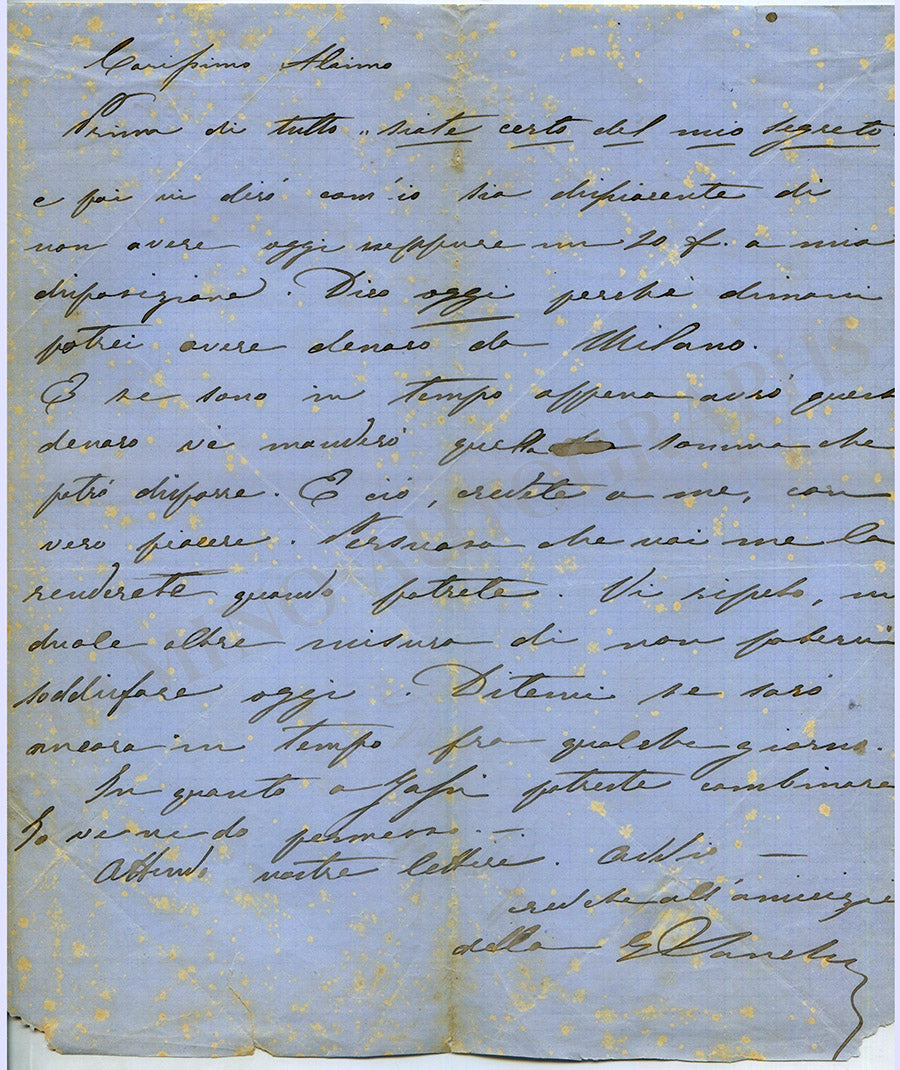 Carissimo Alaimo
Prima di tutto „ siate certo del mio segreto
e poi vi dirò com'io sia dispiacente di
non avere oggi neppure un 20 f. a mia
disposizione. Dico oggi perchè dimani
potrei avere denaro da Milano.
E se sono in tempo appena avrò quest
denaro vi manderò quella somma che
potrò disporre. E ciò, credete a me, con
vero piacere. Persuasa che voi me la
renderete quando potrete. Vi ripeto, mi
duole oltre misura di non potervi
soddisfare oggi. Ditemi se sarò
ancora in tempo fra qualche giorno.
In quanto a potreste combinare
Io ve ne do permesso. —
Attendo vostre lettere. Addio —
credete all'amicizia
della